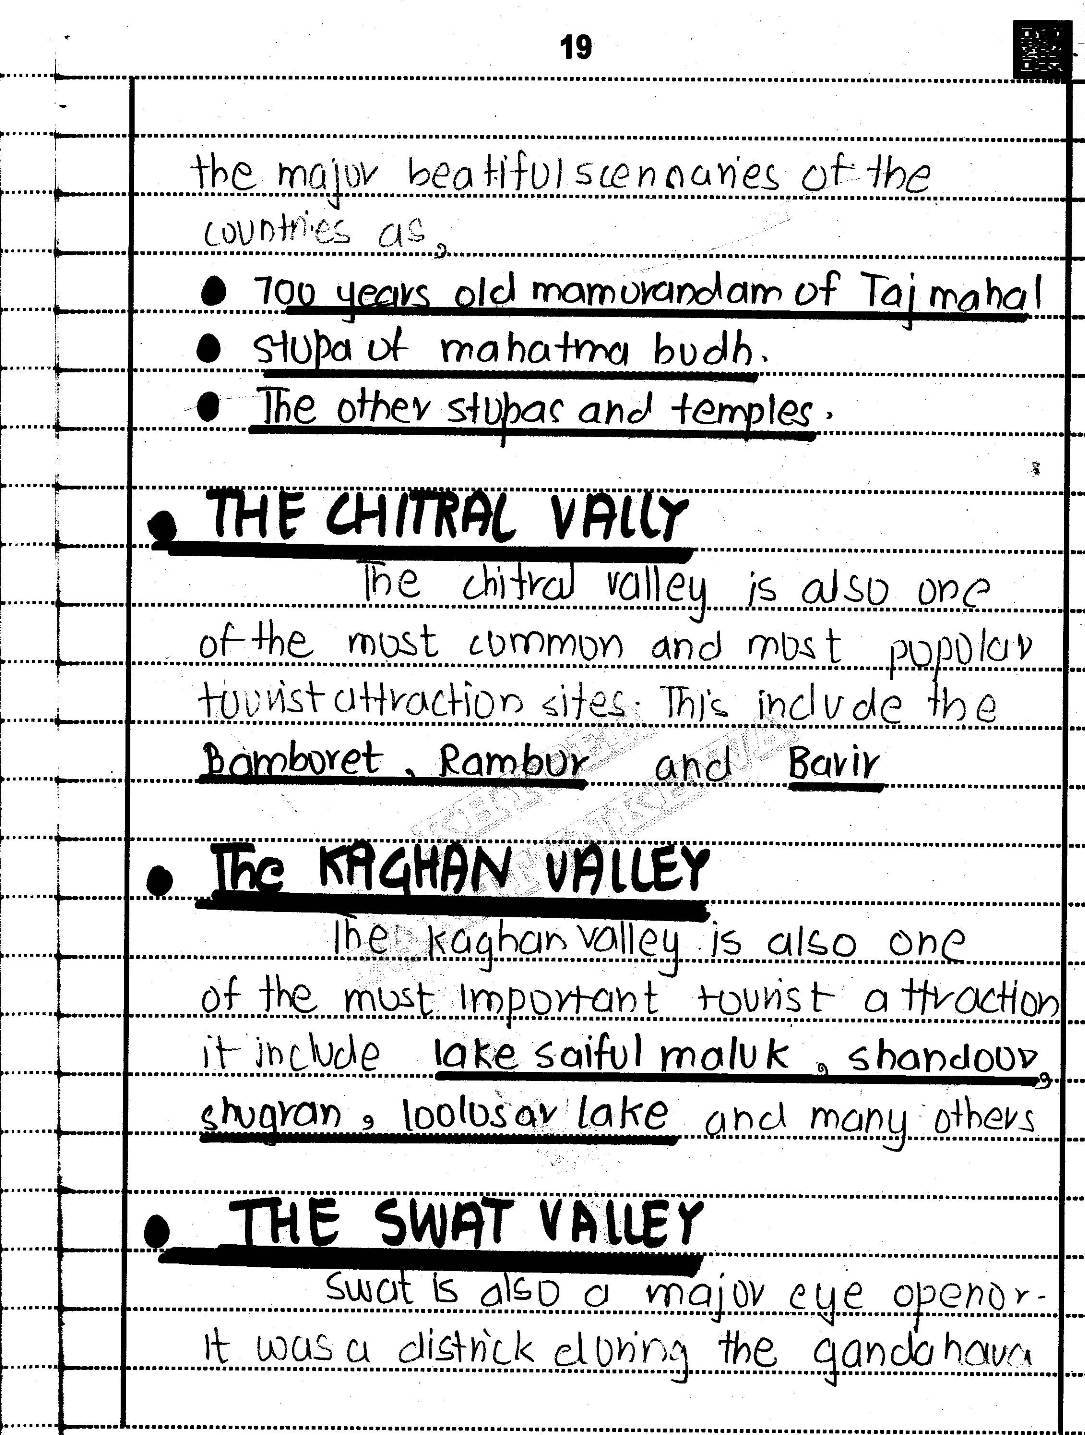 19
the major beatiful scennaries of the
countries as,
700 years old mamurandam of Taj mahal
stupa of mahatma budh.
The other stupas and temples.
THE CHITRAL VALLY
The chitral valley is also one
of the most common and most popular
tourist attraction sites. This include the
Bamboret, Rambur and Bavir
The KAGHAN VALLEY
The kaghan valley is also one
of the most important tourist attraction
it include lake saiful maluk, shandour,
shugran, loolusar lake and many others
THE SWAT VALLEY
swat is also a major eye openor.
it was a district during the gandahara